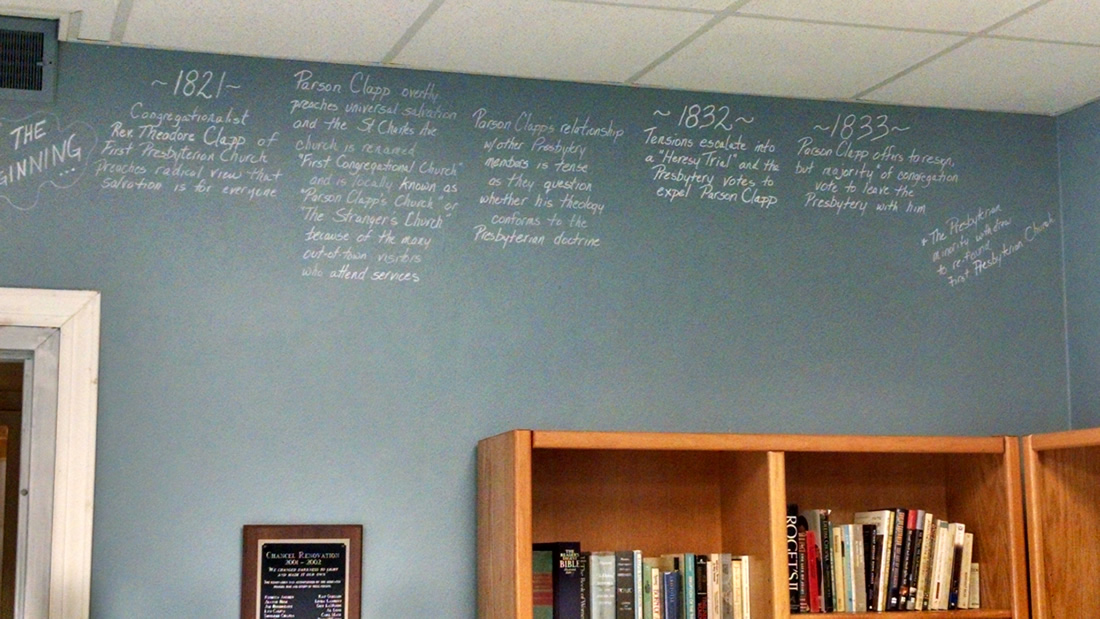 THE
GINNING
...
~1821~
Congregationalist
Rev. Theodore Clapp of
First Presbyterian Church
preaches radical view that
salvation is for everyone
Parson Clapp overtly
preaches universal salvation
and the St Charles Ave
church is renamed
"First Congregational Church"
and is locally known as
"Parson Clapp's Church" or
"The Stranger's Church"
because of the many
out-of-town visitors
who attend services
Parson Clapp's relationship
w/other Presbytery
members is tense
as they question
whether his theology
conforms to the
Presbyterian doctrine
~1832~
Tensions escalate into
a "Heresy Trial" and the
Presbytery votes to
expel Parson Clapp
~1833~
Parson Clapp offers to resign,
but majority of congregation
vote to leave the
Presbytery with him
* The Presbyterian
minority withdrew
to re-found
First Presbyterian Church
CHANCEL RENOVATION
2001 - 2002
BIBLE
ROGET'S II